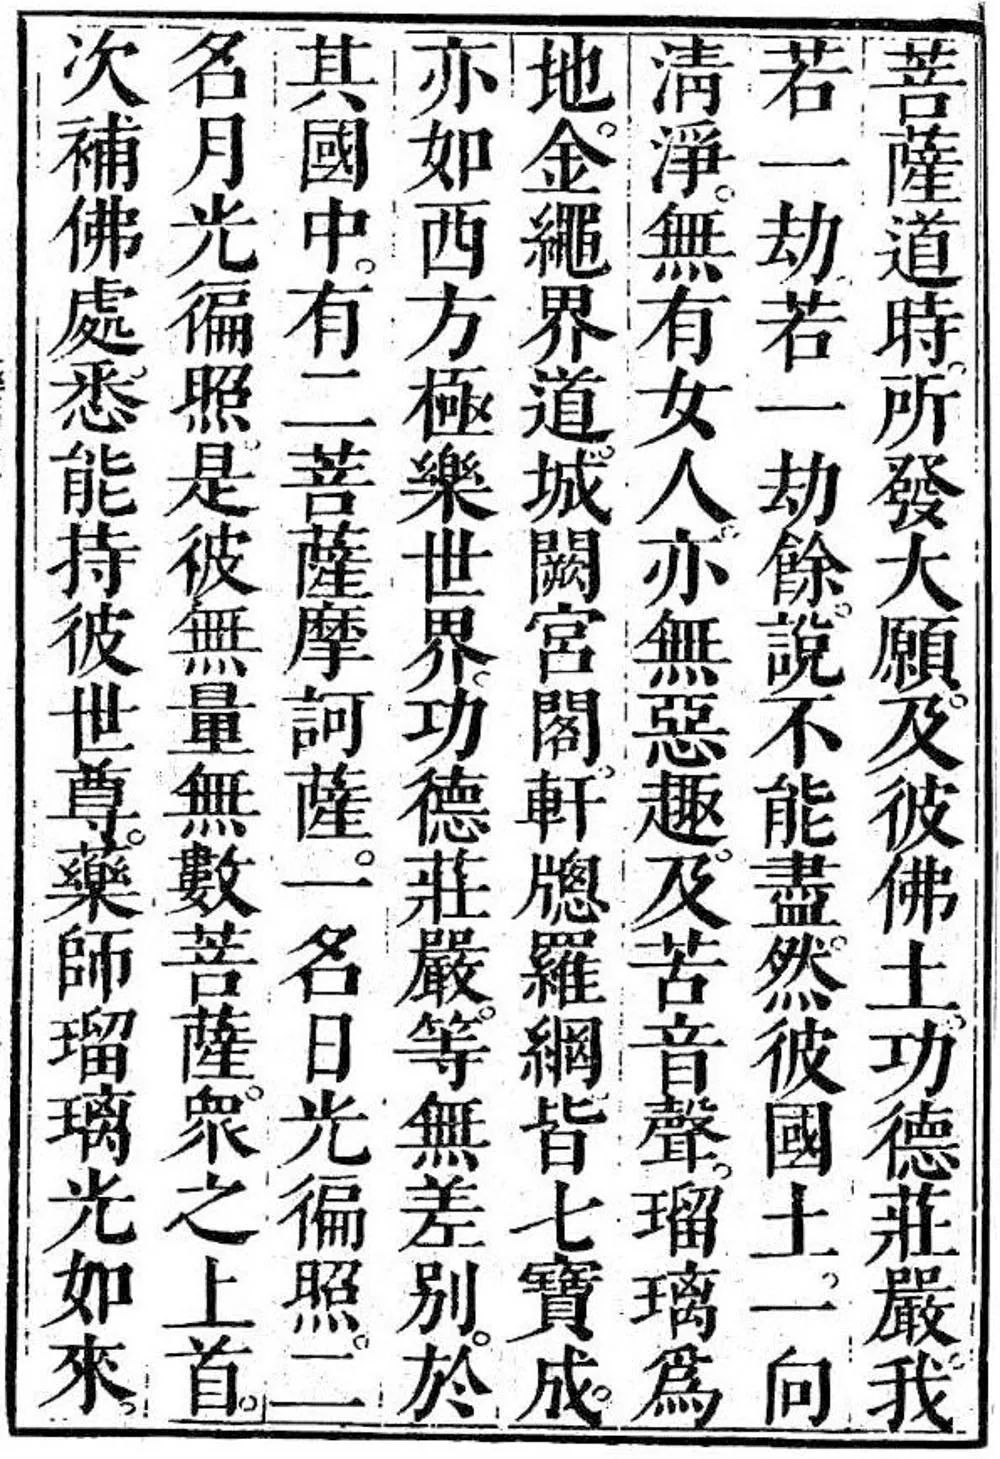 菩薩道時。所發大願。及彼佛土。功德莊嚴。我
若一劫。若一劫餘。說不能盡。然彼國土。一向
淸淨。無有女人。亦無惡趣。及苦音聲。瑠璃爲
地。金繩界道。城闕宮閣。軒牕羅網。皆七寶成。
亦如西方極樂世界。功德莊嚴。等無差别。於
其國中。有二菩薩摩訶薩。一名日光徧照。二
名月光徧照。是彼無量無數菩薩衆。之上首。
次補佛處。悉能持彼世尊。藥師瑠璃光如來。